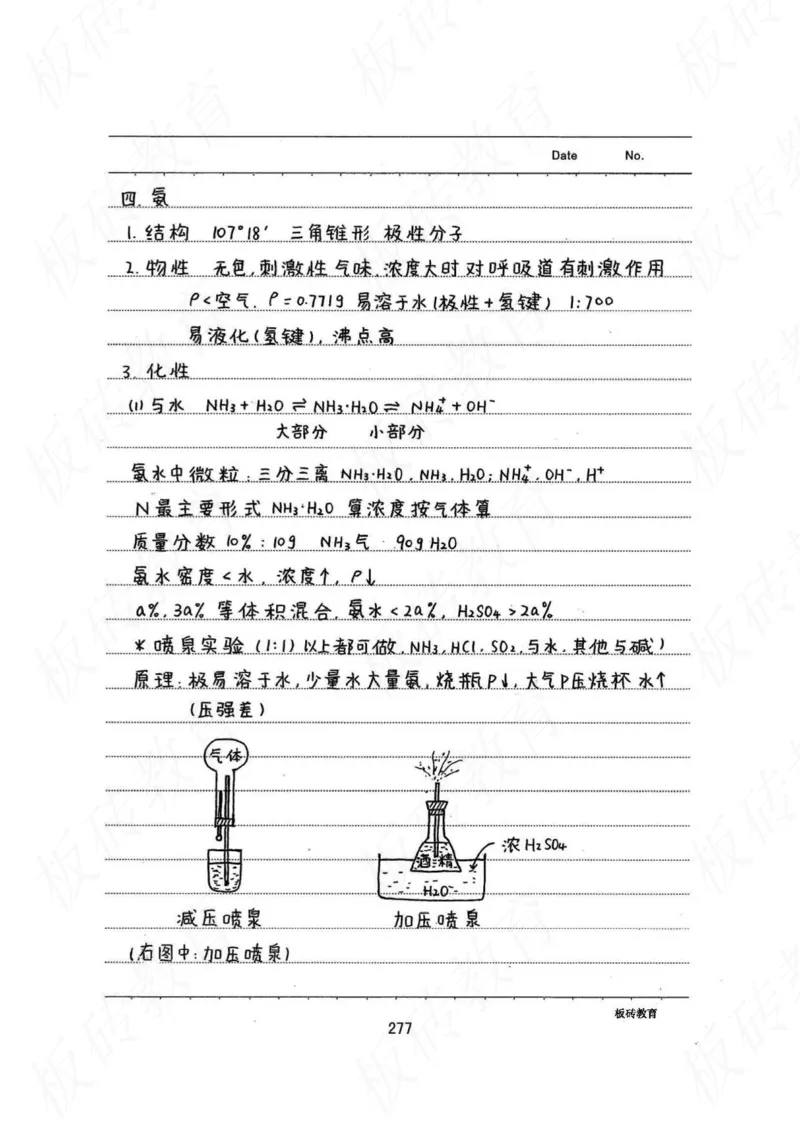 Date No.
四. 氨
1. 结构 107°18′ 三角锥形 极性分子
2. 物性 无色, 刺激性气味, 浓度大时对呼吸道有刺激作用
ρ<空气. ρ=0.7719 易溶于水(极性+氢键) 1:700
易液化(氢键), 沸点高
3. 化性
(1) 与水 NH₃+H₂O ⇌ NH₃·H₂O ⇌ NH₄⁺+OH⁻
大部分 小部分
氨水中微粒: 三分三离 NH₃·H₂O, NH₃, H₂O; NH₄⁺, OH⁻, H⁺
N最主要形式 NH₃·H₂O 算浓度按气体算
质量分数 10%: 10g NH₃气 90g H₂O
氨水密度<水, 浓度↑, ρ↓
a%, 3a% 等体积混合, 氨水<2a%, H₂SO₄>2a%
* 喷泉实验 (1:1) 以上都可做, NH₃, HCl, SO₂, 与水, 其他与碱)
原理: 极易溶于水, 少量水大量氨, 烧瓶P↓, 大气P压烧杯水↑
(压强差)
气体
浓H₂SO₄
酒精
H₂O
减压喷泉 加压喷泉
(右图中: 加压喷泉)
板砖教育
277
板砖教育